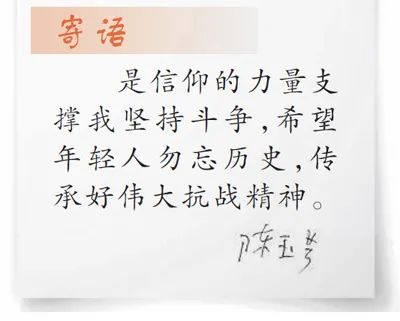 寄语
是信仰的力量支
撑我坚持斗争,希望
年轻人勿忘历史,传
承好伟大抗战精神。
陈玉芳